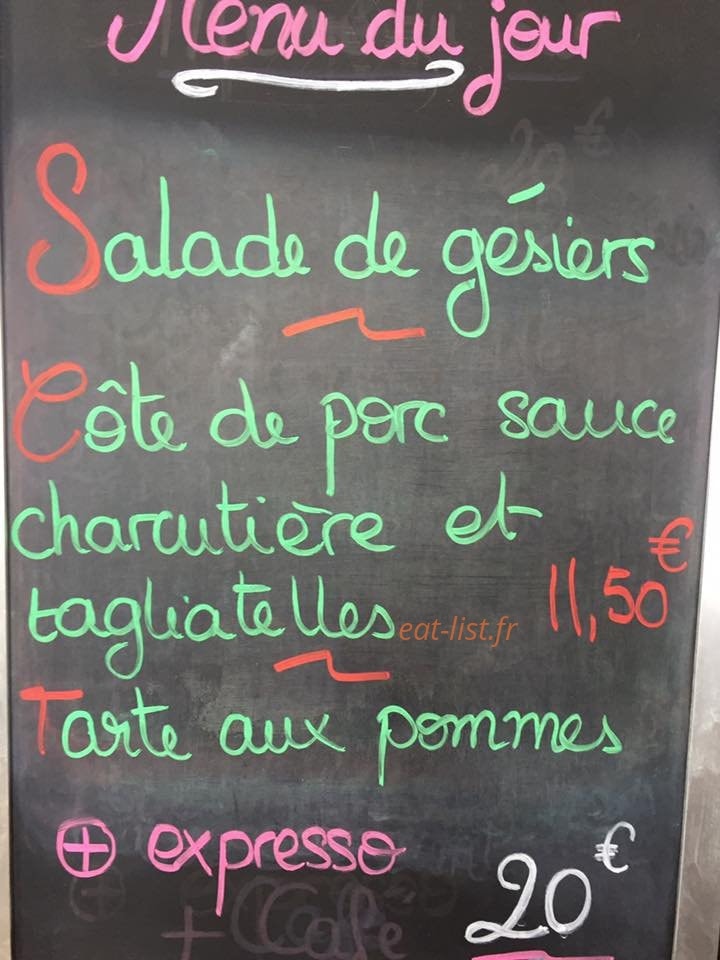 Menu du jour
Salade de gésiers
Côte de porc sauce
charcutière et
tagliatelles eat-list.fr 11,50€
Tarte aux pommes
+ expresso
20€
+ Café
20€